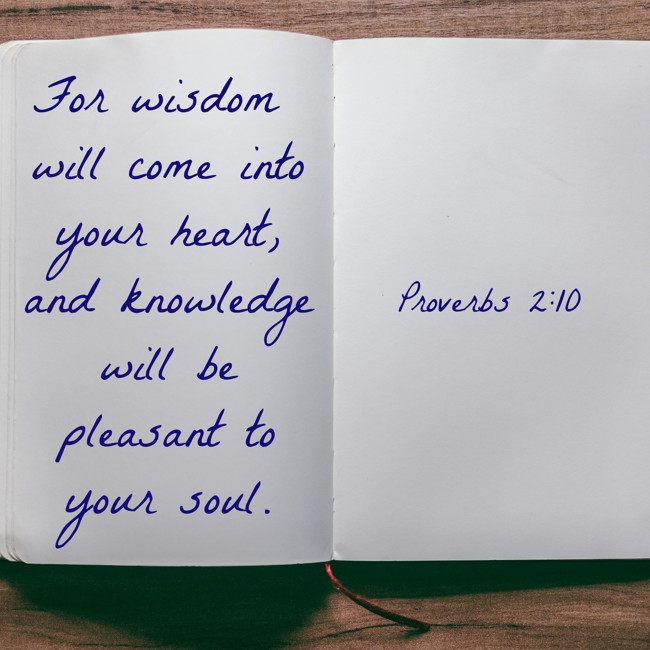 For wisdom
will come into
your heart,
and knowledge
will be
pleasant to
your soul.
Proverbs 2:10